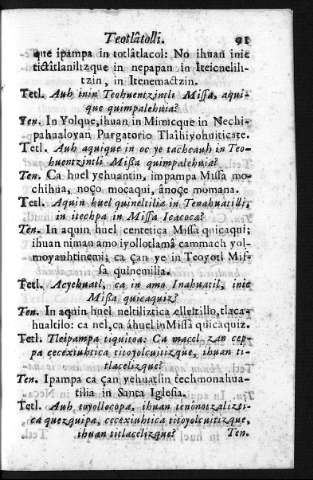 Teotlàtolli. 91
que ipampa in totlàtlacol: No ihuan inic
tictlàtlanilizque in nepapan in Iteicnelili-
tzin, in Itenemactzin.
Tetl. Auh inin Teohuentzintli Missa, aqui-
que quimpalehuia?
Ten. In Yolque, ihuan in Mimicque in Nechi-
pahualoyan Purgatorio Tlaihiyohuiticate.
Tetl. Auh aquique in oc ye tachcauh in Teo-
huentzintli Missa quimpalehuia?
Ten. Ca huel yehuantin, impampa Missa mo-
chihua, noço mocaqui, ànoçe momana.
Tetl. Aquin huel quineltilia in Tenahuatilli,
in itechpa in Missa Icacoca?
Ten. In aquin huel centetica Missa quicaqui;
ihuan niman amo iyollotlamà cammach yol-
moyauhtinemi; ca çan ye in Teoyotl Mis-
sa quinemilia.
Tetl. Acyekuatl, ca in amo Inahuatil, inic
Missa quicaquiz?
Ten. In aquin huel neltiliztica elletillo, tlaca-
hualtilo: ca nel, ca àhuel in Missa quicaquiz.
Tetl. Tleipampa tiquitoa: Ca macel zan cep-
pa cecexiuhtica titoyolcuitizque, ihuan ti-
tlacelizque?
Ten. Ipampa ca çan yehuatlin techmonahua-
tilia in Santa Iglesia.
Tetl. Auh toyollocopa, ihuan tenònotzalizti-
ca quezquipa, cecexiuhtica titoyolcuitizque,
ihuan titlacelizque?
Ten.